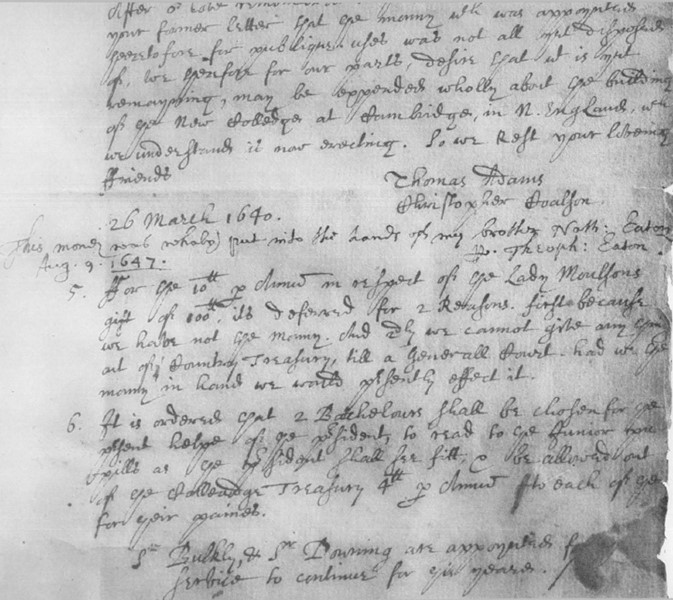 your former letter that ye monny wch was appoynted
heeretofore for publique uses was not all yet disposed
of, we therfore for our parts, desire that wt is yet
remayning, may be expended wholly about ye building
of ye New Colledge at Cambridge, in N. England, wch
we understand is now erecting. So we Rest your loveing
ffriends
Thomas Adams
Christopher Coalson.
26 March 1640.
This money was wholy put into the hands of my brother Nath: Eaton
p. Theoph: Eaton.
Aug. 9. 1647.
5. ffor ye 10th p Annū in respect of ye Lady Moulsons
gift of 100th, its deferred for 2 Reasons. first because
we have not ye money. And 2ly we cannot give any
out of ye Country Treasury, till a Generall Court. had we ye
money in hand we would psently effect it.
6. It is ordered that 2 Bachelours shall be chosen for ye
psent helpe of ye psident, to read to ye Junior pu
pills as ye psident shall see fitt, & be allowed out
of ye Colleadge Treasury 4th p Annū to each of ym
for their paines.
Sr Bulkly, & Sr Downing are appoynted for
service to continue for one yeare.